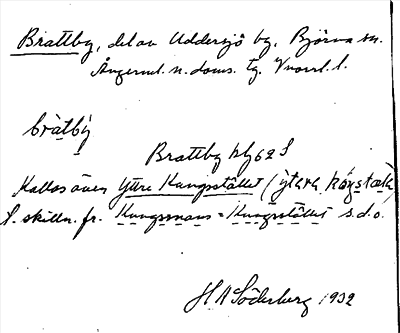 Brattby, del av Uddersjö by, Björna sn.
Ångerml. n. doms. tg. Vnorrl. l.
bràtbỳ
Brattby hfg 62 S
Kallas även Yttre Kungsstället (ỳtərə kó̜ŋstælə)
t. skilln. fr. Kungsmans-Kungsstället s.d.o.
H A Söderberg 1932